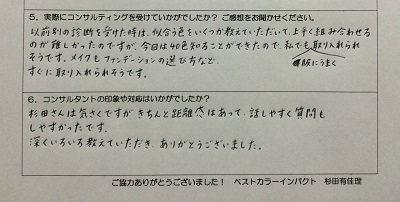 5．実際にコンサルティングを受けていかがでしたか？ ご感想をお聞かせください。
以前別の診断を受けた時は、似合う色をいくつか教えていただいて、上手く組み合わせる
のが難しかったのですが、今回は40色知ることができたので、私でも取り入れられ
そうです。メイクもファンデーションの選び方など
服にうまく
すぐに取り入れられそうです。
6．コンサルタントの印象や対応はいかがでしたか？
杉田さんは気さくですがきちんと距離感はあって、話しやすく質問も
しやすかったです。
深くいろいろ教えていただき、ありがとうございました。
ご協力ありがとうございました！ ベストカラーインパクト 杉田有佳理